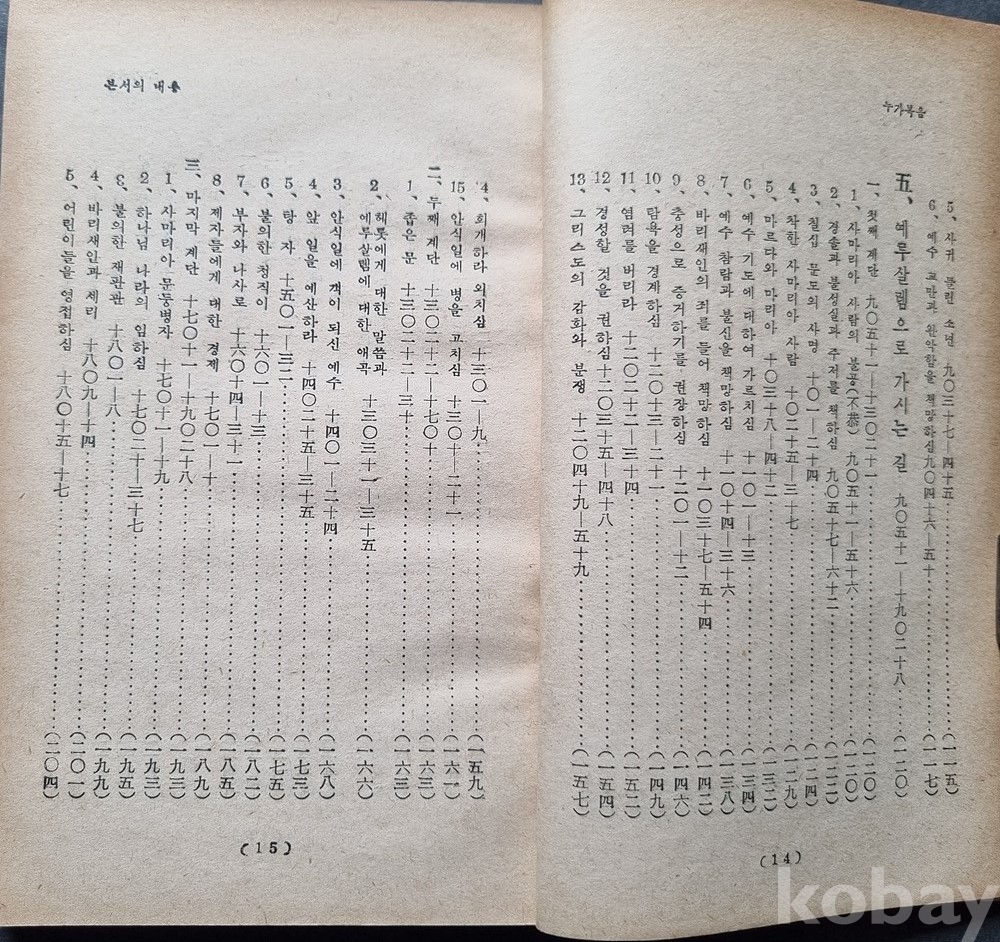 누가복음
5、사귀 들린 소년 九〇三十七—四十五……(一一五)
6、예수 교만과 완악함을 책망하심九〇四十六—五十……(一一七)
五、예루살렘으로 가시는 길 九〇五十一—十九〇二十八……(一二〇)
一、첫째 계단 九〇五十一—十三〇二十一……(一二〇)
1、사마리아 사람의 불공(不恭) 九〇五十一—五十六……(一二〇)
2、경솔과 불성실과 주저를 책하심 九〇五十七—六十二……(一二二)
3、칠십 문도의 사명 十〇一—二十四……(一二四)
4、착한 사마리아 사람 十〇二十五—三十七……(一二九)
5、마르다와 마리아 十〇三十八—四十二……(一三二)
6、예수 기도에 대하여 가르치심 十一〇一—十三……(一三四)
7、예수 참람과 불신을 책망하심 十一〇十四—三十六……(一三八)
8、바리새인의 죄를 들어 책망하심 十一〇三十七—五十四……(一四二)
9、충성으로 증거하기를 권장하심 十二〇一—十二……(一四六)
10、탐욕을 경계하심 十二〇十三—二十一……(一四九)
11、염려를 버리라 十二〇二十二—三十四……(一五二)
12、경성할 것을 권하심十二〇三十五—四十八……(一五四)
13、그리스도의 감화와 분쟁 十二〇四十九—五十九……(一五七)
(14)
본서의 내용
4、회개하라 외치심 十三〇一—九……(一五九)
15、안식일에 병을 고치심 十三〇十—二十一……(一六一)
二、두째 계단 十三〇二十二—十七〇十……(一六三)
1、좁은 문 十三〇二十二—三十……(一六三)
2、헤롯에게 대한 말씀과
예루살렘에 대한 애곡 十三〇三十一—三十五……(一六六)
3、안식일에 객이 되신 예수 十四〇一—二十四……(一六八)
4、앞 일을 예산하라 十四〇二十五—三十五……(一七三)
5、탕자 十五〇一—三二……(一七五)
6、불의한 청직이 十六〇一—十三……(一八二)
7、부자와 나사로 十六〇十四—三十一……(一八五)
8、제자들에게 대한 경계 十七〇一—十……(一八九)
三、마지막 계단 十七〇十一—十九〇二十八……(一九三)
1、사마리아 문둥병자 十七〇十一—十九……(一九三)
2、하나님 나라의 임하심 十七〇二十—三十七……(一九五)
3、불의한 재판관 十八〇一—八……(一九九)
4、바리새인과 세리 十八〇九—十四……(二〇一)
5、어린이들을 영접하심 十八〇十五—十七……(二〇四)
(15)
kobay